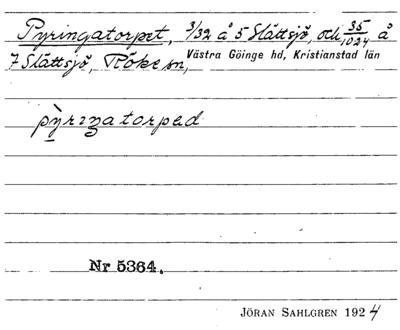 Pyringatorpet, 3/32 å 5 Slättsjö, och 35/1024 å
7 Slättsjö, Röke sn, Västra Göinge hd, Kristianstad län
pỳrıŋatorpəd
Nr 5364.
JÖRAN SAHLGREN 1924